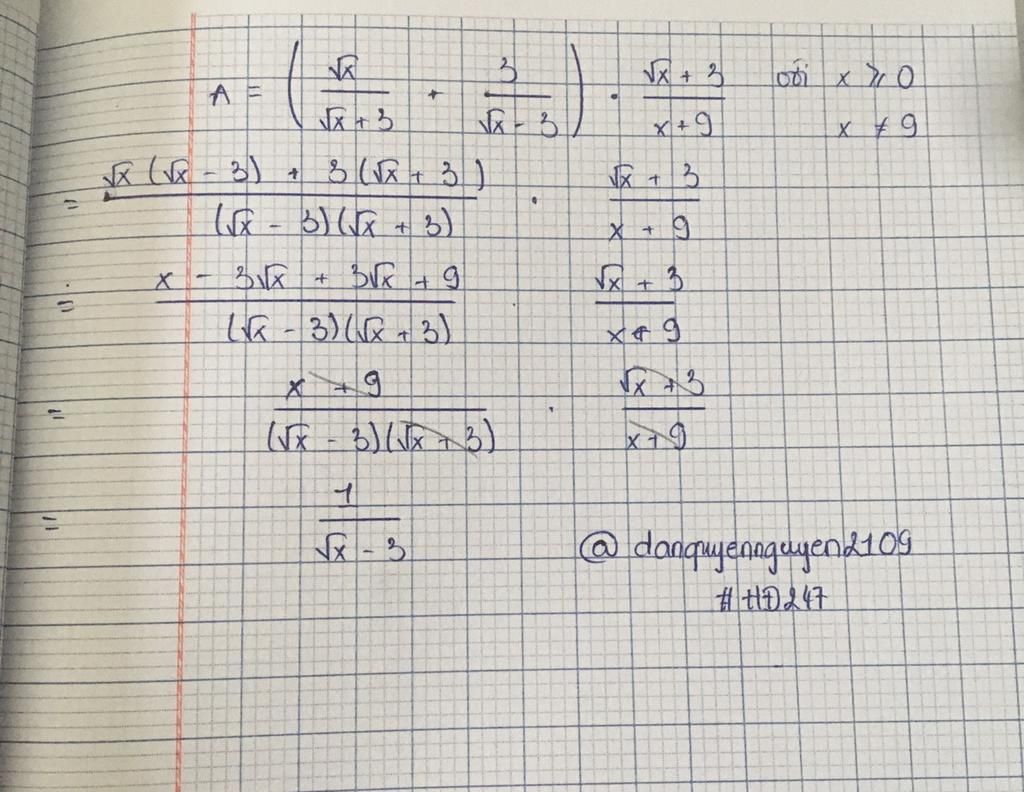 A = ( √x / (√x + 3) + 3 / (√x - 3) ) . (√x + 3) / (x + 9) với x ≥ 0
x ≠ 9
= (√x (√x - 3) + 3 (√x + 3)) / ((√x - 3)(√x + 3)) . (√x + 3) / (x + 9)
= (x - 3√x + 3√x + 9) / ((√x - 3)(√x + 3)) . (√x + 3) / (x + 9)
= (x + 9) / ((√x - 3)(√x + 3)) . (√x + 3) / (x + 9)
= 1 / (√x - 3)
@danquyennguyen2109
#HĐ247